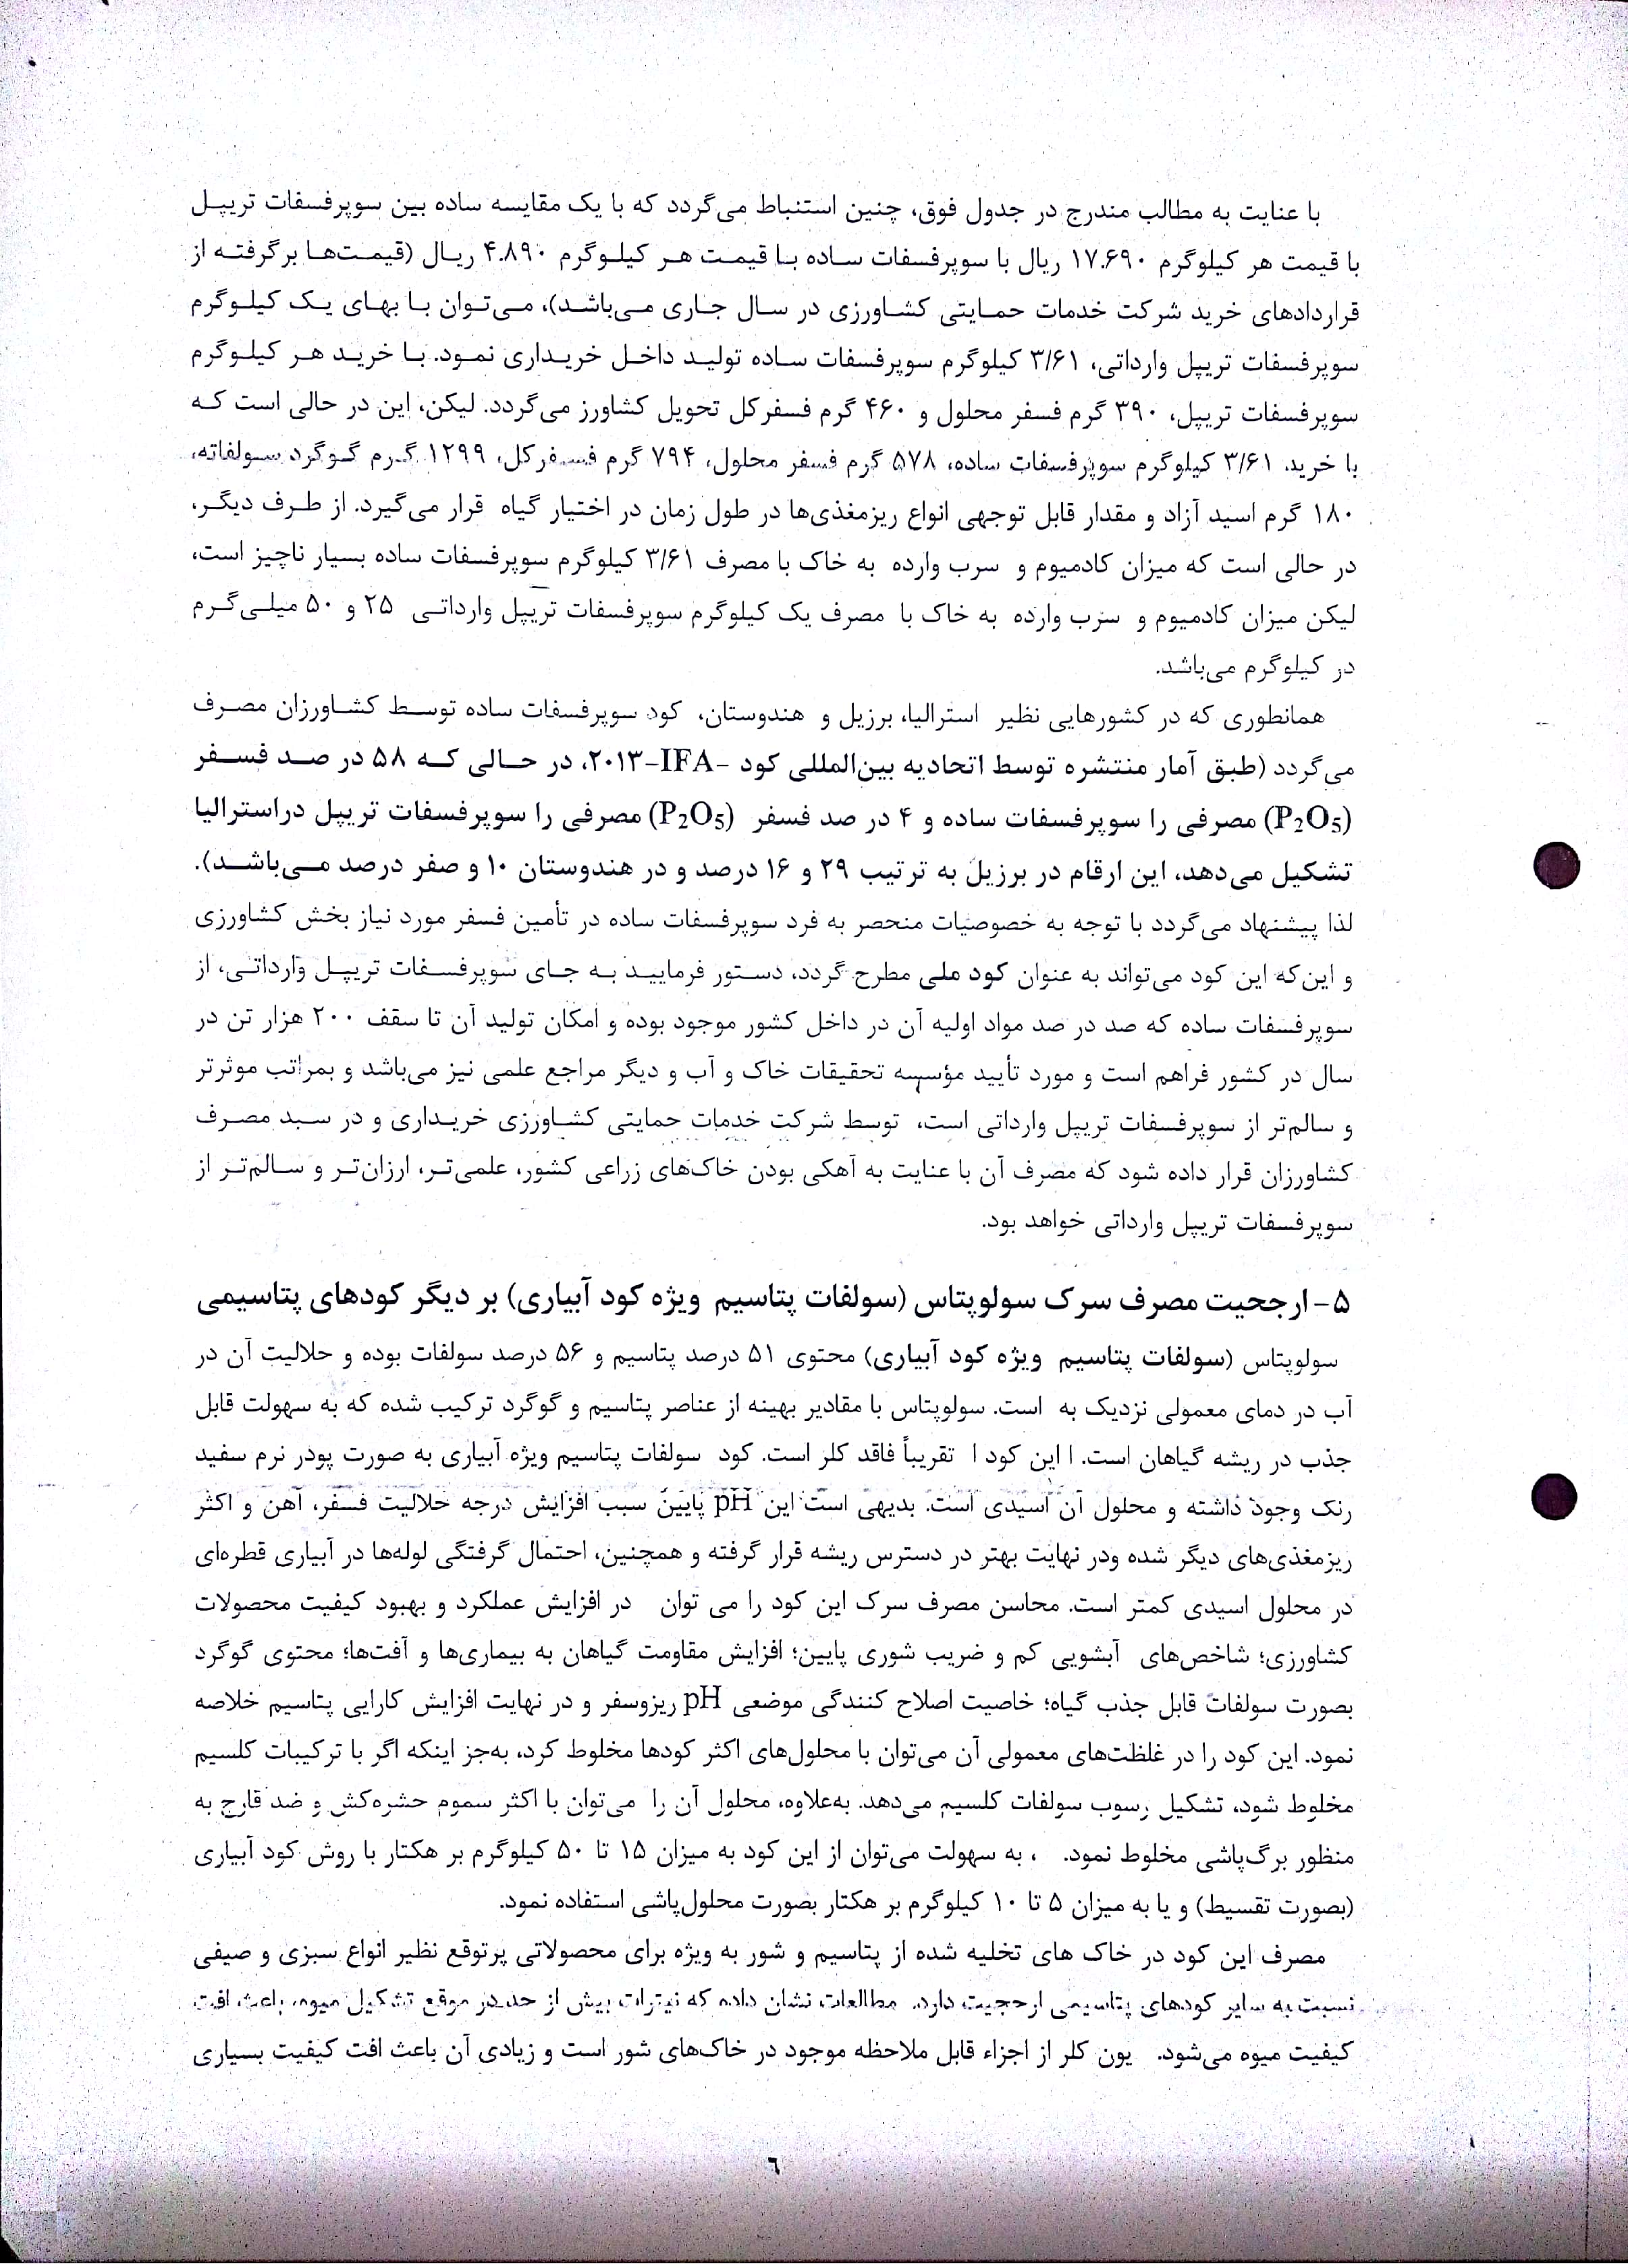 با عنایت به مطالب مندرج در جدول فوق، چنین استنباط می‌گردد که با یک مقایسه ساده بین سوپرفسفات تریپل
با قیمت هر کیلوگرم ۱۷.۶۹۰ ریال با سوپرفسفات ساده با قیمت هر کیلوگرم ۴.۸۹۰ ریال (قیمت‌ها برگرفته از
قراردادهای خرید شرکت خدمات حمایتی کشاورزی در سال جاری می‌باشد)، می‌توان با بهای یک کیلوگرم
سوپرفسفات تریپل وارداتی، ۳/۶۱ کیلوگرم سوپرفسفات ساده تولید داخل خریداری نمود. با خرید هر کیلوگرم
سوپرفسفات تریپل، ۳۹۰ گرم فسفر محلول و ۴۶۰ گرم فسفرکل تحویل کشاورز می‌گردد. لیکن، این در حالی است که
با خرید ۳/۶۱ کیلوگرم سوپرفسفات ساده، ۵۷۸ گرم فسفر محلول، ۷۹۴ گرم فسفرکل، ۱۲۹۹ گرم گوگرد سولفاته،
۱۸۰ گرم اسید آزاد و مقدار قابل توجهی انواع ریزمغذی‌ها در طول زمان در اختیار گیاه قرار می‌گیرد. از طرف دیگر،
در حالی است که میزان کادمیوم و سرب وارده به خاک با مصرف ۳/۶۱ کیلوگرم سوپرفسفات ساده بسیار ناچیز است،
لیکن میزان کادمیوم و سرب وارده به خاک با مصرف یک کیلوگرم سوپرفسفات تریپل وارداتی ۲۵ و ۵۰ میلی‌گرم
در کیلوگرم می‌باشد.
همانطوری که در کشورهایی نظیر استرالیا، برزیل و هندوستان، کود سوپرفسفات ساده توسط کشاورزان مصرف
می‌گردد (طبق آمار منتشره توسط اتحادیه بین‌المللی کود -IFA-۲۰۱۳، در حالی که ۵۸ در صد فسفر
(P2O5) مصرفی را سوپرفسفات ساده و ۴ در صد فسفر (P2O5) مصرفی را سوپرفسفات تریپل دراسترالیا
تشکیل می‌دهد، این ارقام در برزیل به ترتیب ۲۹ و ۱۶ درصد و در هندوستان ۱۰ و صفر درصد می‌باشد).
لذا پیشنهاد می‌گردد با توجه به خصوصیات منحصر به فرد سوپرفسفات ساده در تأمین فسفر مورد نیاز بخش کشاورزی
و این‌که این کود می‌تواند به عنوان کود ملی مطرح گردد، دستور فرمایید به جای سوپرفسفات تریپل وارداتی، از
سوپرفسفات ساده که صد در صد مواد اولیه آن در داخل کشور موجود بوده و امکان تولید آن تا سقف ۲۰۰ هزار تن در
سال در کشور فراهم است و مورد تأیید مؤسسه تحقیقات خاک و آب و دیگر مراجع علمی نیز می‌باشد و بمراتب موثرتر
و سالم‌تر از سوپرفسفات تریپل وارداتی است، توسط شرکت خدمات حمایتی کشاورزی خریداری و در سبد مصرف
کشاورزان قرار داده شود که مصرف آن با عنایت به آهکی بودن خاک‌های زراعی کشور، علمی‌تر، ارزان‌تر و سالم‌تر از
سوپرفسفات تریپل وارداتی خواهد بود.
۵- ارجحیت مصرف سرک سولوپتاس (سولفات پتاسیم ویژه کود آبیاری) بر دیگر کودهای پتاسیمی
سولوپتاس (سولفات پتاسیم ویژه کود آبیاری) محتوی ۵۱ درصد پتاسیم و ۵۶ درصد سولفات بوده و حلالیت آن در
آب در دمای معمولی نزدیک به است. سولوپتاس با مقادیر بهینه از عناصر پتاسیم و گوگرد ترکیب شده که به سهولت قابل
جذب در ریشه گیاهان است. ا این کود ا تقریباً فاقد کلر است. کود سولفات پتاسیم ویژه آبیاری به صورت پودر نرم سفید
رنک وجود داشته و محلول آن اسیدی است. بدیهی است این pH پایین سبب افزایش درجه حلالیت فسفر، آهن و اکثر
ریزمغذی‌های دیگر شده ودر نهایت بهتر در دسترس ریشه قرار گرفته و همچنین، احتمال گرفتگی لوله‌ها در آبیاری قطره‌ای
در محلول اسیدی کمتر است. محاسن مصرف سرک این کود را می توان در افزایش عملکرد و بهبود کیفیت محصولات
کشاورزی؛ شاخص‌های آبشویی کم و ضریب شوری پایین؛ افزایش مقاومت گیاهان به بیماری‌ها و آفت‌ها؛ محتوی گوگرد
بصورت سولفات قابل جذب گیاه؛ خاصیت اصلاح کنندگی موضعی pH ریزوسفر و در نهایت افزایش کارایی پتاسیم خلاصه
نمود. این کود را در غلظت‌های معمولی آن می‌توان با محلول‌های اکثر کودها مخلوط کرد، به‌جز اینکه اگر با ترکیبات کلسیم
مخلوط شود، تشکیل رسوب سولفات کلسیم می‌دهد. به‌علاوه، محلول آن را می‌توان با اکثر سموم حشره‌کش و ضد قارچ به
منظور برگ‌پاشی مخلوط نمود. ، به سهولت می‌توان از این کود به میزان ۱۵ تا ۵۰ کیلوگرم بر هکتار با روش کود آبیاری
(بصورت تقسیط) و یا به میزان ۵ تا ۱۰ کیلوگرم بر هکتار بصورت محلول‌پاشی استفاده نمود.
مصرف این کود در خاک های تخلیه شده از پتاسیم و شور به ویژه برای محصولاتی پرتوقع نظیر انواع سبزی و صیفی
نسبت به سایر کودهای پتاسیمی ارجحیت دارد. مطالعات نشان داده که نیترات بیش از حد در موقع تشکیل میوه، باعث افت
کیفیت میوه می‌شود. یون کلر از اجزاء قابل ملاحظه موجود در خاک‌های شور است و زیادی آن باعث افت کیفیت بسیاری
٦